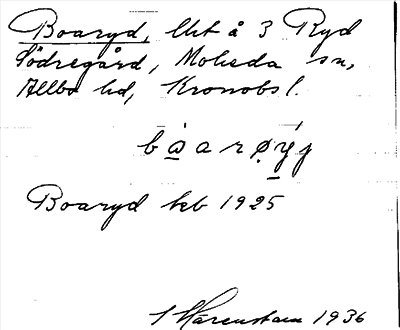 Boaryd, lht å 3 Ryd
Södregård, Moheda sn,
Allbo hd, Kronobs l.
bωarøyj
Boaryd kb 1925
1936